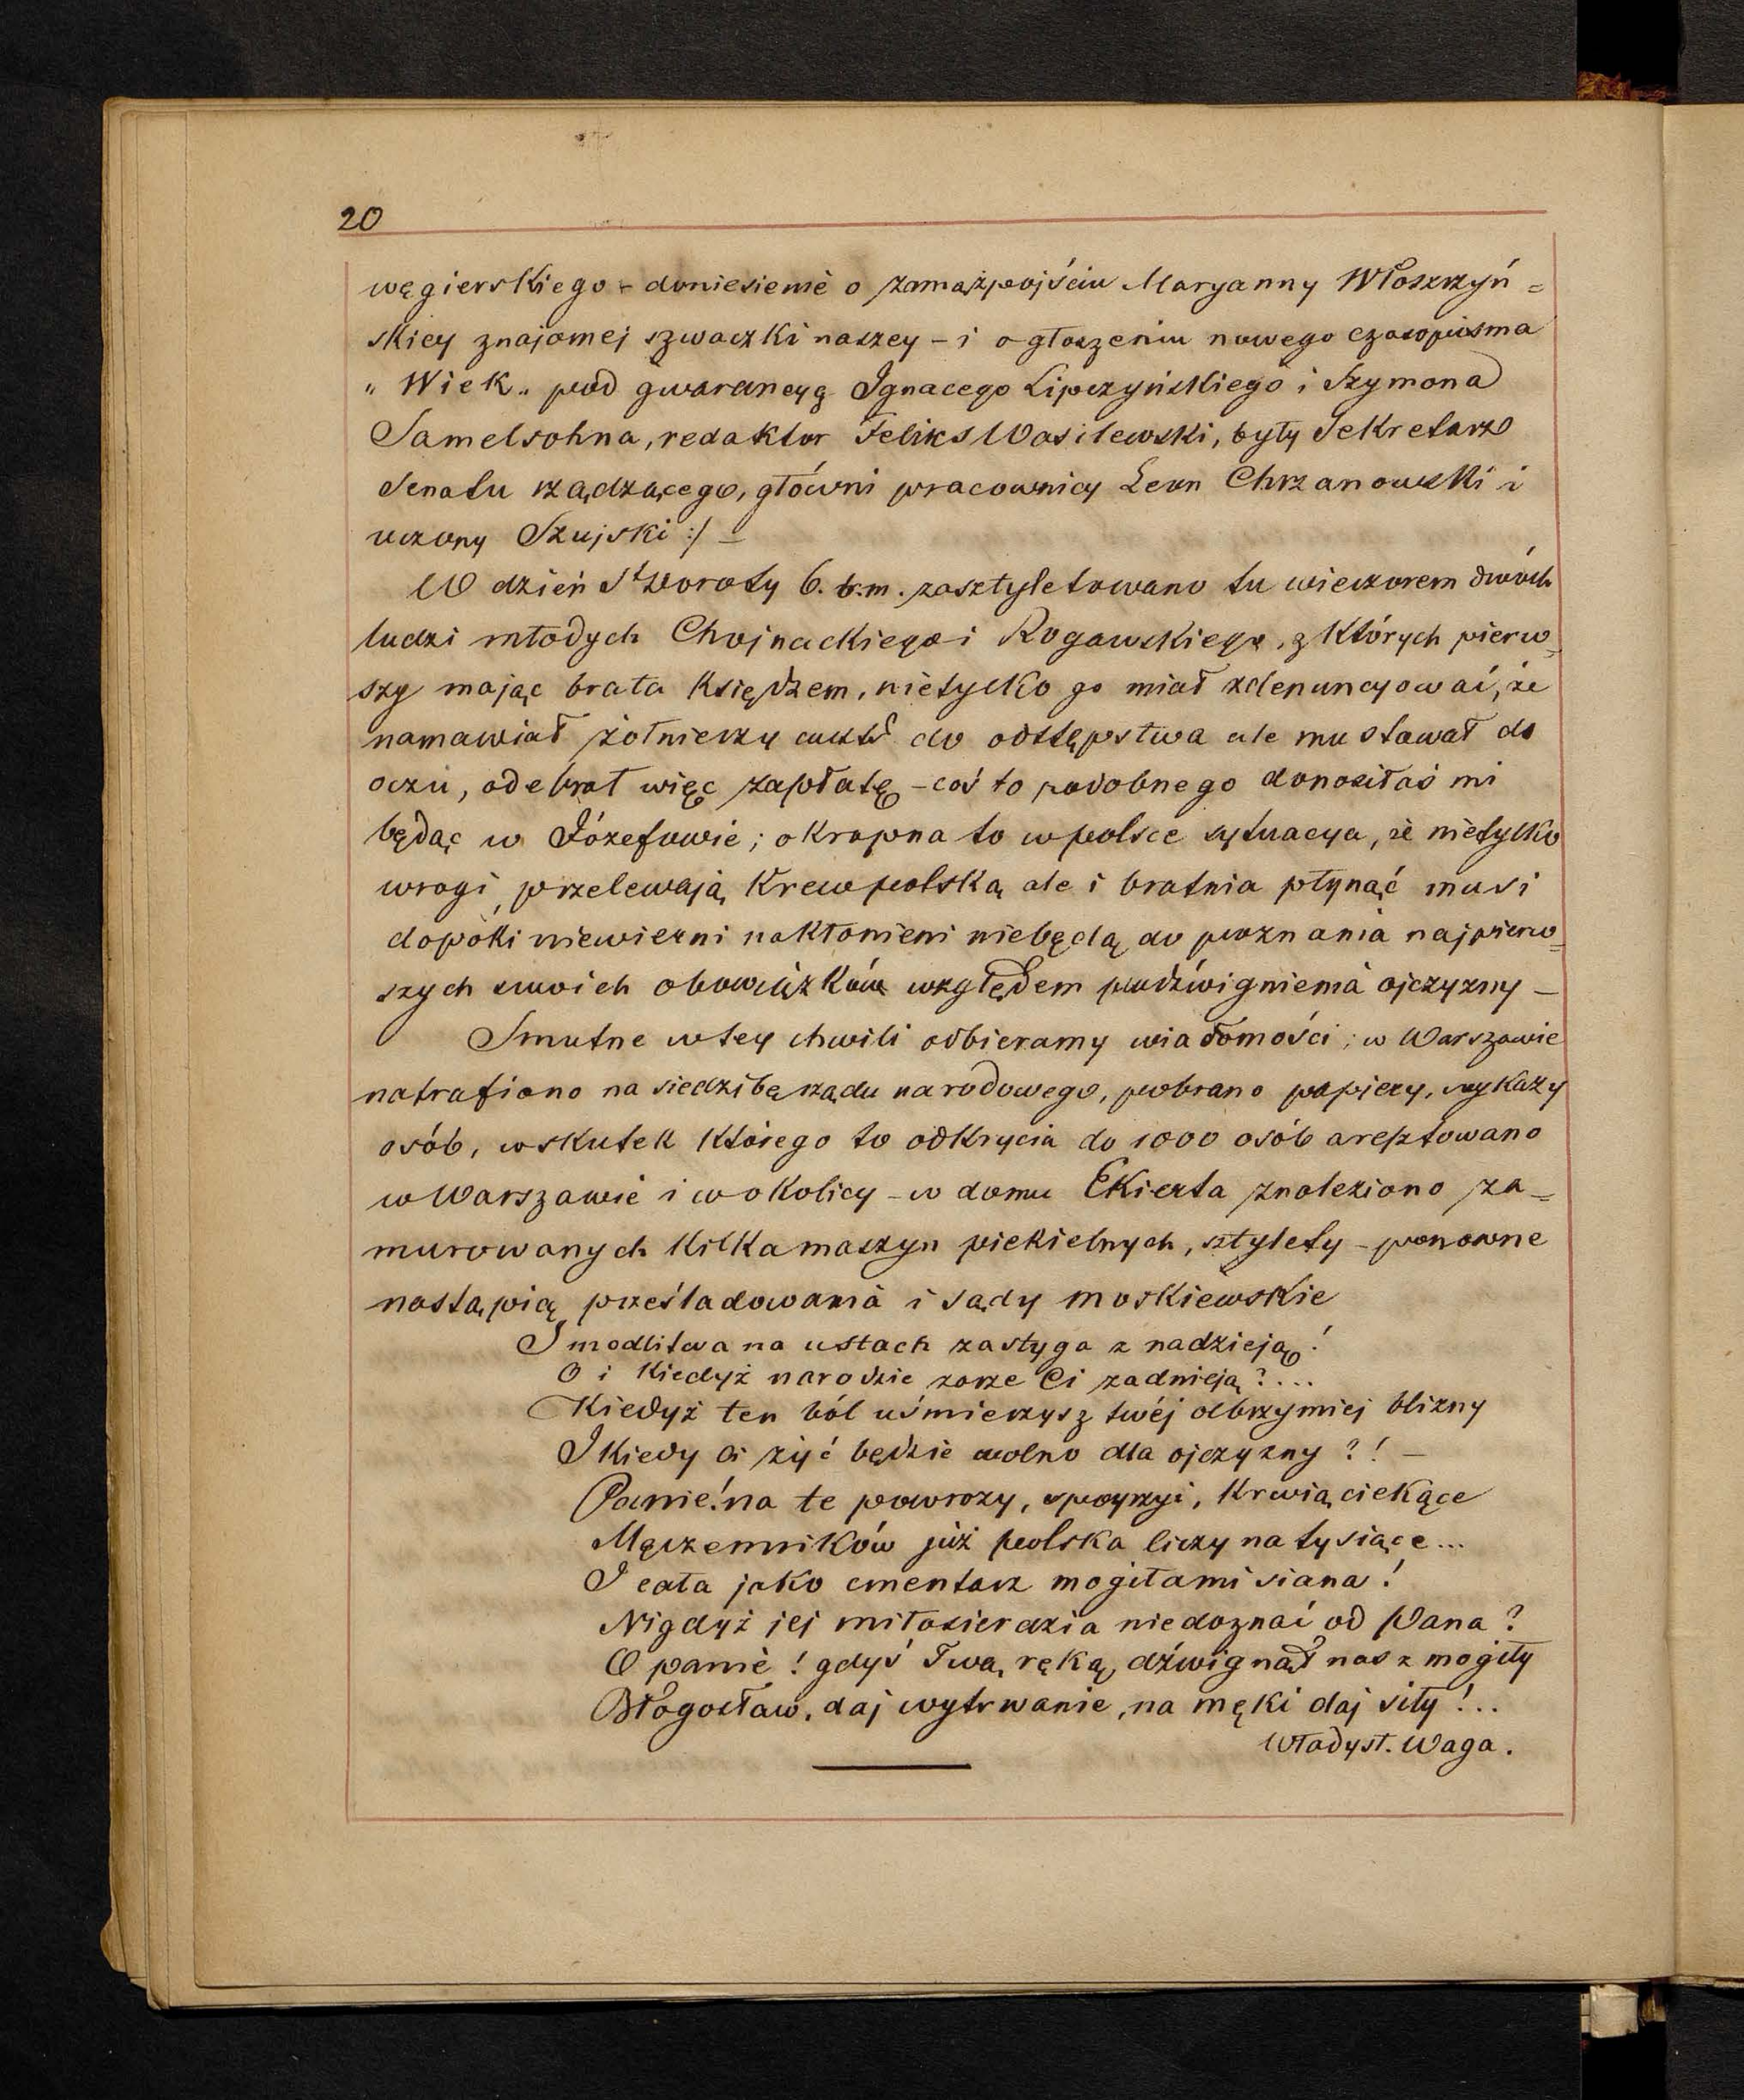 20
węgierskiego – doniesienie o zamążpojściu Maryanny Włoszczyń=
skiey znajomej szwaczki naszey – i ogłoszeniu nowego czasopisma
„Wiek„ pod gwarancyą Ignacego Lipczyńskiego i Szymona
Samelsohna, redaktor Feliks Wasilewski, były Sekretarz
Senatu rządzącego, główni pracownicy Leon Chrzanowski i
uczony Szujski :/ –
W dzień Sᵗ Doroty 6. b.m. zasztyletowano tu wieczorem dwóch
ludzi młodych Chojnackiego i Rogawskiego, z których pierw=
szy mając brata księdzem, nietylko go miał zdenuncyować, że
namawiał żołnierzy austr do odstępstwa ale mu stawał do
oczu, odebrał więc zapłatę – coś to podobnego donosiłaś mi
będąc w Józefowie; okropna to w polsce sytuacya, że nietylko
wrogi przelewają krew polską ale i bratnia płynąć musi
dopóki niewierni nakłonieni niebędą do poznania najpierw=
szych swoich obowiązków względem podźwignienia ojczyzny –
Smutne w tey chwili odbieramy wiadomości; w Warszawie
natrafiono na siedzibę rządu narodowego, pobrano papiery, wykazy
osób, wskutek którego to odkrycia do 1000 osób aresztowano
w Warszawie i w okolicy – w domu Ekierta znaleziono za=
murowanych kilka maszyn piekielnych, sztylety – ponowne
nastąpią prześladowania i sądy moskiewskie
I modlitwa na ustach zastyga z nadzieją!
O i kiedyż narodzie zorze Ci zadnieją?...
Kiedyż ten ból uśmierzysz twéj olbrzymiej blizny
I kiedy Ci żyć będzie wolno dla ojczyzny?! –
Panie! na te powrozy, spojrzyi, krwią ciekące
Męczenników już polska liczy na tysiące...
I cała jako cmentarz mogiłami siana!
Nigdyż jej miłosierdzia niedoznać od Pana?
O panie! gdyś Twą ręką dźwignął nas z mogiły
Błogosław, daj wytrwanie, na męki daj siły!..
Władysł. Waga.